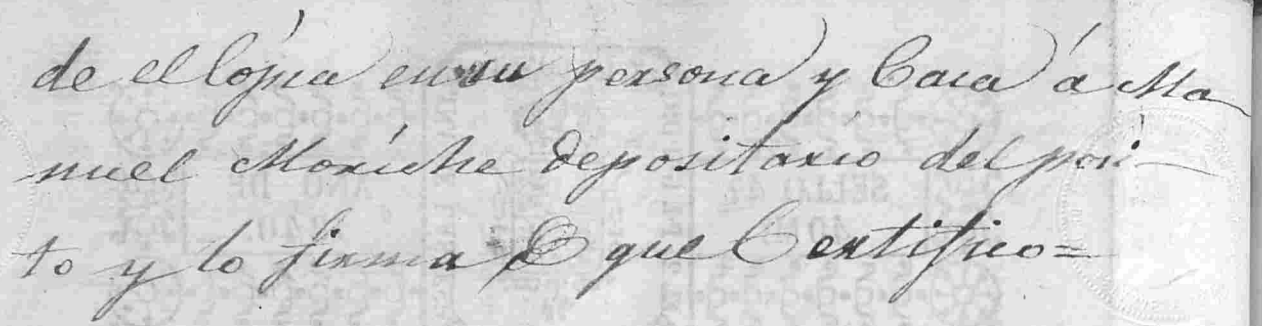 de el Cópia en su persona y Casa á Ma
nuel Moriche depositario del pósi-
to y lo firma de que Certifico=
SELLO 4º
AÑO DE